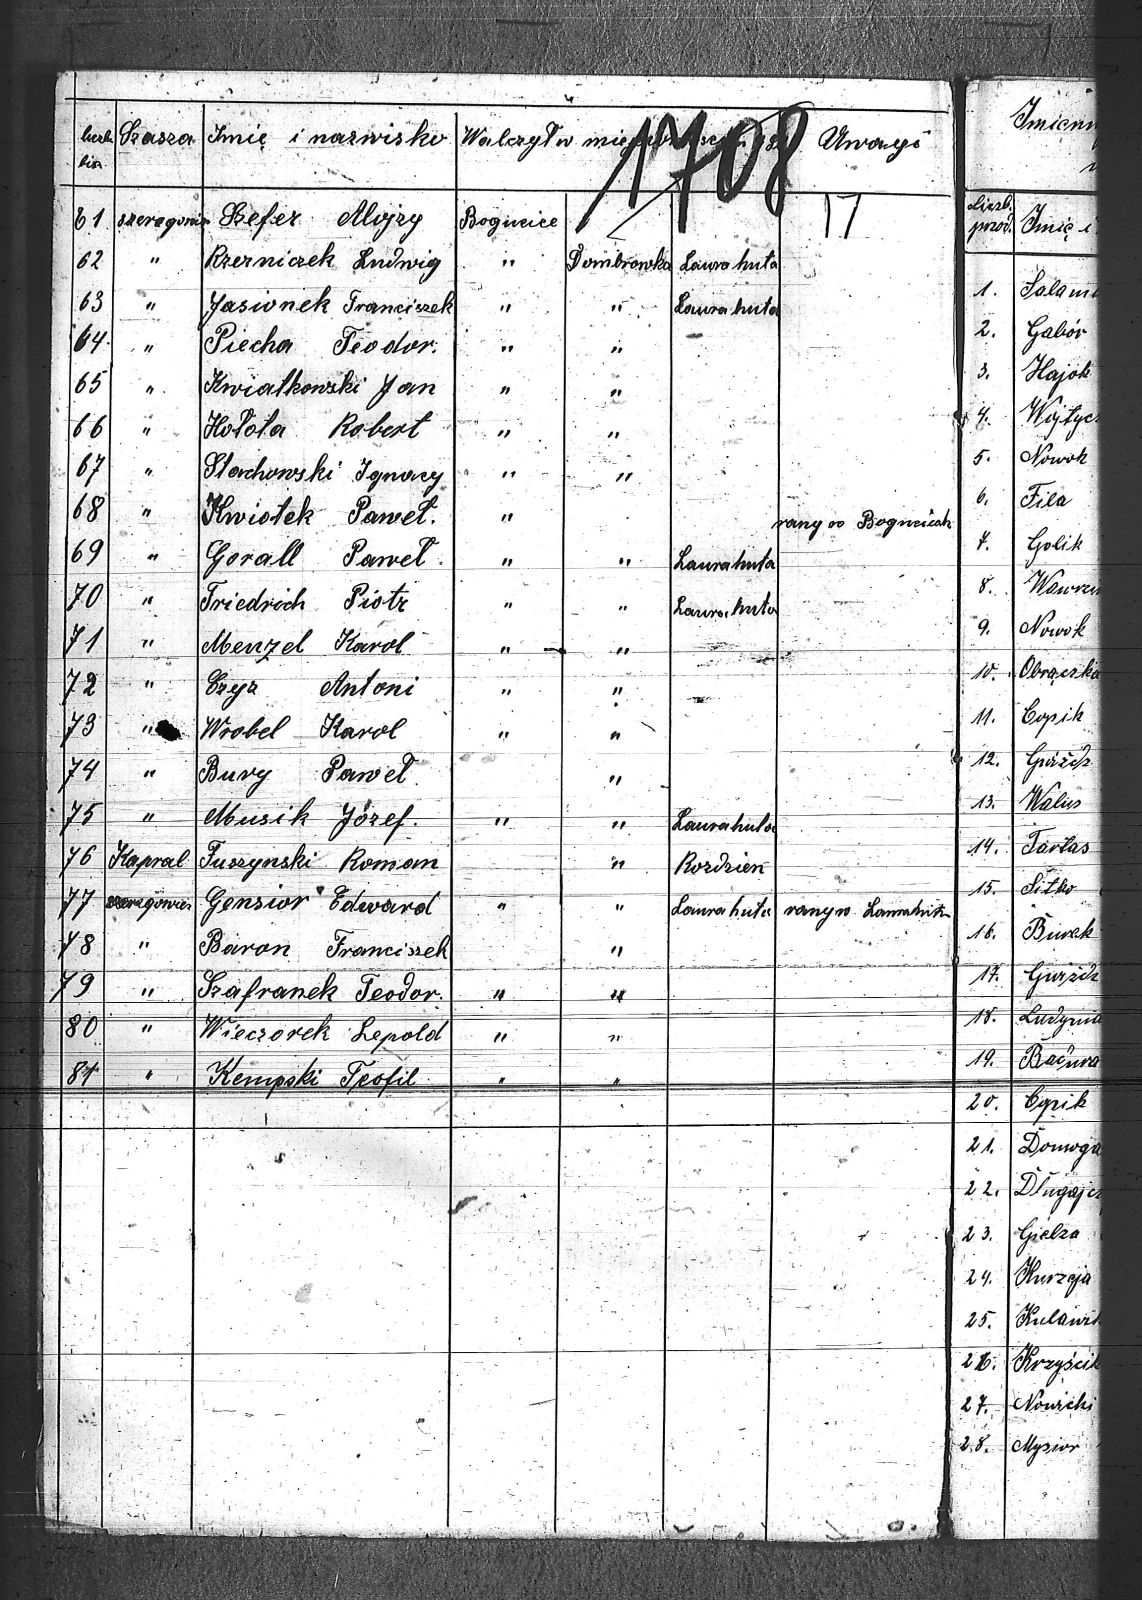 Szasza Imię i nazwisko Walczył w Uwagi
1708
17
61 szeregowiec Szefer Alojzy Bogucice
62 " Rzerniczek Ludwig " Dombrowka Laurahuta
63 " Jasionek Franciszek " " Laurahuta
64 " Piecha Teodor. " "
65 " Kwiatkowski Jan " "
66 " Hołota Robert " "
67 " Stachowski Ignacy " "
68 " Kwiotek Paweł. " rany w Bogucicach
69 " Gorall Paweł. " " Laurahuta
70 " Friedrich Piotr " " Laurahuta
71 " Menzel Karol " "
72 " Czyz Antoni " "
73 " Wrobel Karol " "
74 " Bury Paweł "
75 " Musik Józef. " " Laurahuta
76 Kapral Tuszynski Roman " Rozdzien
77 szeregowiec Gensior Edward " " Laurahuta rany w Laurahuta
78 " Baron Franciszek "
79 " Szafranek Teodor. " "
80 " Wieczorek Lepold " "
81 " Kempski Teofil " "
Imienn
Liczb. przod. Imię i
1. Salam
2. Gabór
3. Hajok
4. Wojtyc
5. Nowok
6. Fila
7. Golik
8. Wawrzy
9. Nowok
10. Obrączka
11. Copik
12. Guźdz
13. Walus
14. Tarłas
15. Sitko
16. Burek
17. Guźdz
18. Ludyma
19. Baćuwa
20. Copik
21. Domoga
22. Długajcz
23. Gielza
24. Kurzeja
25. Kulawi
26. Krzyścik
27. Nowicki
28. Mysior